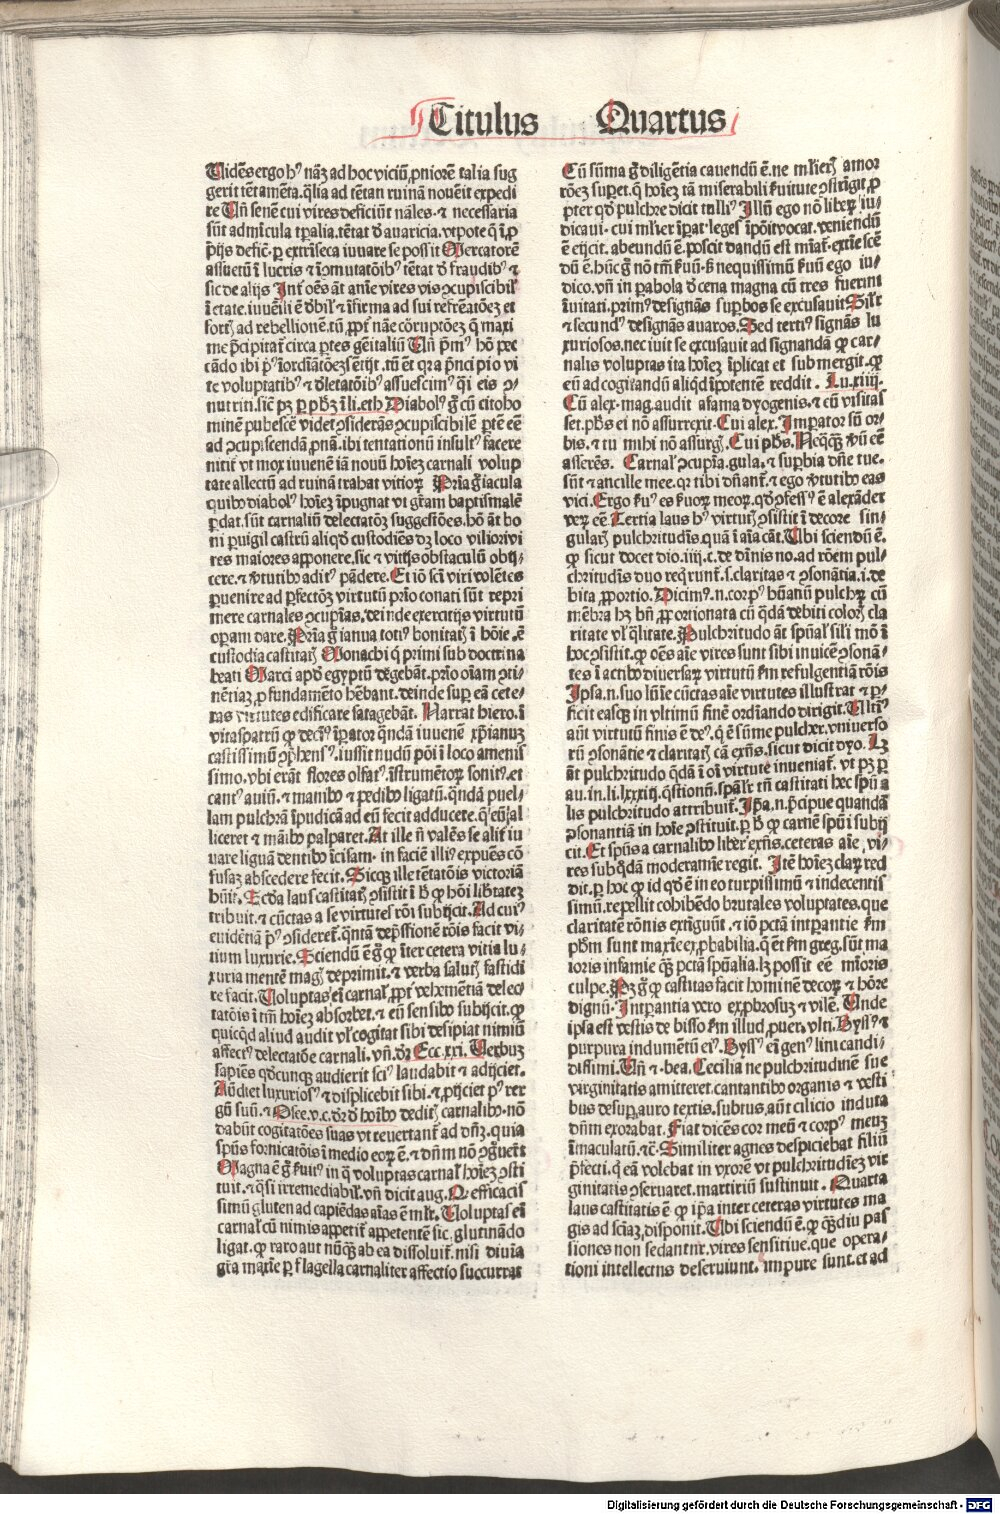 Titulus Quartus
Uidēs ergo hꝰ nāȝ ad hoc viciū, ꝓniorē talia sug
gerit tētamēta. q̄lia ad tētan ruinā nouerit expedi
re Uñ senē cui vires deficiūt nāles. ⁊ necessaria
sūt admīcula tꝑalia. tētat d̄ auaricia. vtpote q ī ꝓ
prijs defic̄. ꝑ extrīseca iuuare se possit Mercatorē
assuetū ī lucris ⁊ īmutatōibꝰ tētat d̄ fraudibꝰ ⁊
sic de alijs Int̄ oēs āt aīe vires vis ꝯcupiscibil̄
ī etate iuuēli ē d̄bil̄ ⁊ īfirma ad sui refrēatōeȝ et
fort̄ ad rebellionē. tū ꝓpt̄ nāe corruptōeȝ q̄ maxi
me p̄cipitat̄ circa ꝑtes gēitaliū Uñ p̄mꝰ hō pec
cādo ibi pꝰ īordīatōeȝ sēsijt. tū ēt qꝛa p̄ncipio vi
te voluptatibꝰ ⁊ d̄lctatōibꝰ assuescimꝰ q̄i eis ꝯ
nutriti. sic̄ pȝ ꝑ pħȝ ī li. eth Diabolꝰ g̊ cū cito ho
minē pubescē videt ꝯsiderās ꝯcupiscibilē ꝑtē eē
ad ꝯcupiscendā ꝓnā. ibi tentationū insultꝰ facere
nitit̄ vt mox iuuenē iā nouū hoīeȝ carnali volup
tate allectū ad ruinā trahat vitioꝝ Pria g̊ iacula
quibꝰ diabolꝰ hoīeȝ īpugnat vt gr̄am baptismalē
ꝑdat. sūt carnaliū delectatōȝ suggestōes. hō āt bo
ni ꝑuigil castrū aliqd̄ custodiēs dȝ loco viliori vi
res maiores apponere. sic ⁊ vitijs obstaculū obij-
cere. ⁊ v̄tutibꝰ aditꝰ pādere. Et iō sc̄i viri volētes
ꝑuenire ad ꝑfectōȝ virtutū prio conati sūt repri
mere carnales ꝯcupīas. deinde exercitijs virtutū
oꝑam dare. Pria g̊ ianua totꝰ bonitat̄ ī hōie. ē
custodia castitat̄ Monachi q̄ primi sub doctrina
beati Marci apd̄ egyptū degebāt. prio oīam ꝯti-
nētiaȝ ꝓ fundamēto hēbant. deinde suꝑ eā cete-
ras virtutes edificare satagebāt. Narrat hiero. ī
vitaspatrū ꝙ decꝰ īꝑator qndā iuuenē xp̄ianuȝ
castissimū ꝯp̄hensꝰ. iussit nudū pōi ī loco amenis
simo. vbi erāt flores olfatꝰ īstrumētoꝝ sonitꝰ. et
cantꝰ auiū. ⁊ manibꝰ ⁊ pedibꝰ ligatū. qndā puel-
lam pulchrā īpudicā ad eū fecit adducere. q̄ eū al
liceret ⁊ māibꝰ palparet. At ille ñ valēs se alit̄ iu
uare liguā dentibꝰ īcisam. in faciē illiꝰ expuēs cō
fusaȝ abscedere fecit. Sicqȝ ille tētatōis victoriā
hūit. Ecd̄a laus castitat̄ ꝯsistit ī h̄ ꝙ hōi lib̄tateȝ
tribuit. ⁊ cūctas a se virtutes rōi subijcit. Ad cuiꝰ
euidētiā pꝰ ꝯsideret̄. qntā dep̄ssionē rōis facit vi-
tium luxurie. Sciendū ē g̊ ꝙ īter cetera vitia lu-
xuria mentē magꝭ deprimit. ⁊ verba salutꝭ fastidi
re facit. Uoluptas eī carnal̄ ꝓpt̄ vehemētiā delec
tatōis ī tm̄ hoīeȝ absorbet. ⁊ eū sensibꝰ subijcit. ꝙ
quicqd̄ aliud audit vl̄ cogitat sibi desipiat nimiū
affectꝰ delectatōe carnali. vñ. dr̄ Ecc. xxi. Uerbuȝ
sapiēs qd̄cunqȝ audierit sciꝰ laudabit ⁊ adijciet.
Audiet luxuriosꝰ ⁊ displicebit sibi. ⁊ ꝓijciet pꝰ ter
gū suū. ⁊ Osee. v. c. dr̄ d̄ hoībꝰ deditꝭ carnalibꝰ. nō
dabūt cogitatōes suas vt reuertant̄ ad dn̄ȝ. quia
spūs fornicatōis ī medio eoꝝ ē. ⁊ dn̄m nō ꝯguert
Magna ē g̊ ẜuitꝰ in q̄ voluptas carnal̄ hoīeȝ ꝯsti
tuit. ⁊ q̄si irremediabil̄. vñ dicit aug. Ꝙ efficacis
simū gluten ad capiēdas aīas ē ml̄r. Uoluptas eī
carnal̄ cū nimis appetit̄ appetentē sic. glutinādo
ligat. ꝙ raro aut nūqȝ ab ea dissoluit̄. nisi diuīa
gr̄a maxīe ꝑ flagella carnaliter affectio succurrat
Cū sūma g̊ diligētia cauendū ē. ne ml̄ierꝭ amor
rōeȝ suꝑet. q̄ hoīeȝ tā miserabili ẜuitute ꝯstrīgit. ꝓ
pter qd̄ pulchre dicit tulliꝰ Illū ego nō liberꝝ iu-
dicaui. cui ml̄ier īꝑat. leges īpōit vocat. veniendū
ē eijcit. abeundū ē. poscit dandū est mīat̄. extīescē
dū ē. hūc g̊ nō tm̄ ẜuū. ẜ nequissimū ẜuū ego iu-
dico. vñ in ꝑabola d̄ cena magna cū tres fuerint
īuitati. primꝰ designās suꝑbos se excusauit Silr̄
⁊ secundꝰ designās auaros. Sed tertiꝰ signās lu
xuriosos. nec iuit se excusauit ad signandā ꝙ car-
nalis voluptas ita hoīeȝ īplicat et submergit. ꝙ
eū ad cogitandū aliqd̄ īpotentē reddit. Lu. xiiij.
Cū alex. mag. audit afama dyogenis. ⁊ cū visitas
set. pħs ei nō assurrexit. Cui alex. Imꝑator sū or-
bis. ⁊ tu mihi nō assurgꝭ. Cui pħs. Neqȝqȝ vū eē
asserēs. Carnal̄ ꝯcupīa. gula. ⁊ suꝑbia dn̄e tue.
sūt ⁊ ancille mee. qꝛ tibi dn̄ant̄. ⁊ ego v̄tutibꝰ eas
vici. Ergo ẜuꝰ es ẜuoꝝ meoꝝ. qd̄ ꝯfessꝰ ē alexāder
verꝝ eē. Tertia laus hꝰ virtutꝭ ꝯsistit ī decore sin-
gularꝭ pulchritudīs. quā ī aīa cāt. Ubi sciendū ē.
ꝙ sicut docet dio. iiij. c. de dīnis no. ad rōem pul-
chritudīs duo reqrunt̄. s. claritas ⁊ ꝯsonātia. i. de
bita ꝓportio. Dicimꝰ. n. corpꝰ hūanū pulchꝝ cū
mēbra hȝ bn̄ ꝓportionata cū qdā debiti colorꝭ cla
ritate vl̄ q̄litate. Pulchritudo āt spūal̄ sili mō ī
hoc ꝯsistit. ꝙ oēs aīe vires sunt sibi inuicē ꝯsonā-
tes ī actibꝰ diuersaꝝ virtutū ẜm refulgentiā rōis
Ipsa. n. suo lūie cūctas aīe virtutes illustrat ⁊ ꝑ-
ficit easqȝ in vltimū finē ordīando dirigit. Ultīꝰ
aūt virtutū finis ē deꝰ. q ē sūme pulcher. vniuerso
rū ꝯsonātie ⁊ claritatꝭ cā exn̄s. sicut dicit dyo. Lȝ
āt pulchritudo qdā ī oī virtute inueniat̄. vt pȝ ꝑ
au. in. li. lxxxiij. q̄stionū. spāl̄r tn̄ castitati hec spūa
lis pulchritudo attribuit̄. Ip̄a. n. p̄cipue quandā
ꝯsonantiā in hoīe ꝯstituit. ꝑ h̄ ꝙ carnē spūi subij
cit. Et spūs a carnalibꝰ liber exn̄s. ceteras aīe vi-
res sub qdā moderatīne regit. Itē hoīeȝ claꝝ red
dit. ꝑ hoc ꝙ id qd̄ ē in eo turpissimū ⁊ indecentis
simū. repellit cohibēdo brutales voluptates. que
claritatē rōnis extīguūt. ⁊ iō pctā intꝑantie ẜm
pħm sunt maxīe exprobabilia. q̄ ēt ẜm greg. sūt ma
ioris infamie qȝ pctā spūalia. lȝ possit eē mīoris
culpe. Pȝ g̊ ꝙ castitas facit hominē decoꝝ ⁊ hōre
dignū. Intꝑantia vero exprobosuȝ ⁊ vilē. Unde
ipsa est vestis de bisso ẜm illud ꝓuer. vlti. Byssꝰ ⁊
purpura indumētū eiꝰ. Byssꝰ eī genꝰ lini candi-
dissimi. Uñ ⁊ bea. Cecilia ne pulchritudinē sue
virginitatis amitteret. cantantibꝰ organis ⁊ vesti
bus desuꝑ auro textis. subtus aūt cilicio induta
dn̄m exorabat. Fiat dicēs cor meū ⁊ corpꝰ meuȝ
īmaculatū. ⁊c̄. Similiter agnes despiciebat filiū
p̄fecti. q̄ eā volebat in vxorē vt pulchritudīeȝ vir
ginitatis ꝯseruaret. martiriū sustinuit. Quarta
laus castitatis ē ꝙ ip̄a inter ceteras virtutes ma
gis ad sciaȝ disponit. Ubi sciendū ē. ꝙ qȝdiu pas
siones non sedantur. vires sensitiue. que opera-
tioni intellectus deseruiunt. impure sunt. et ad
Digitalisierung gefördert durch die Deutsche Forschungsgemeinschaft - DFG